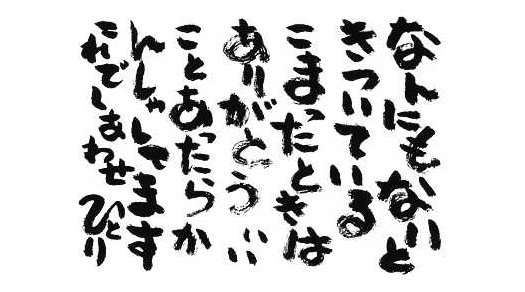 なんにもないと
きづいている
こまったときは
ありがとう いい
ことあったらか
んしゃしてます
これでしあわせ ひとり